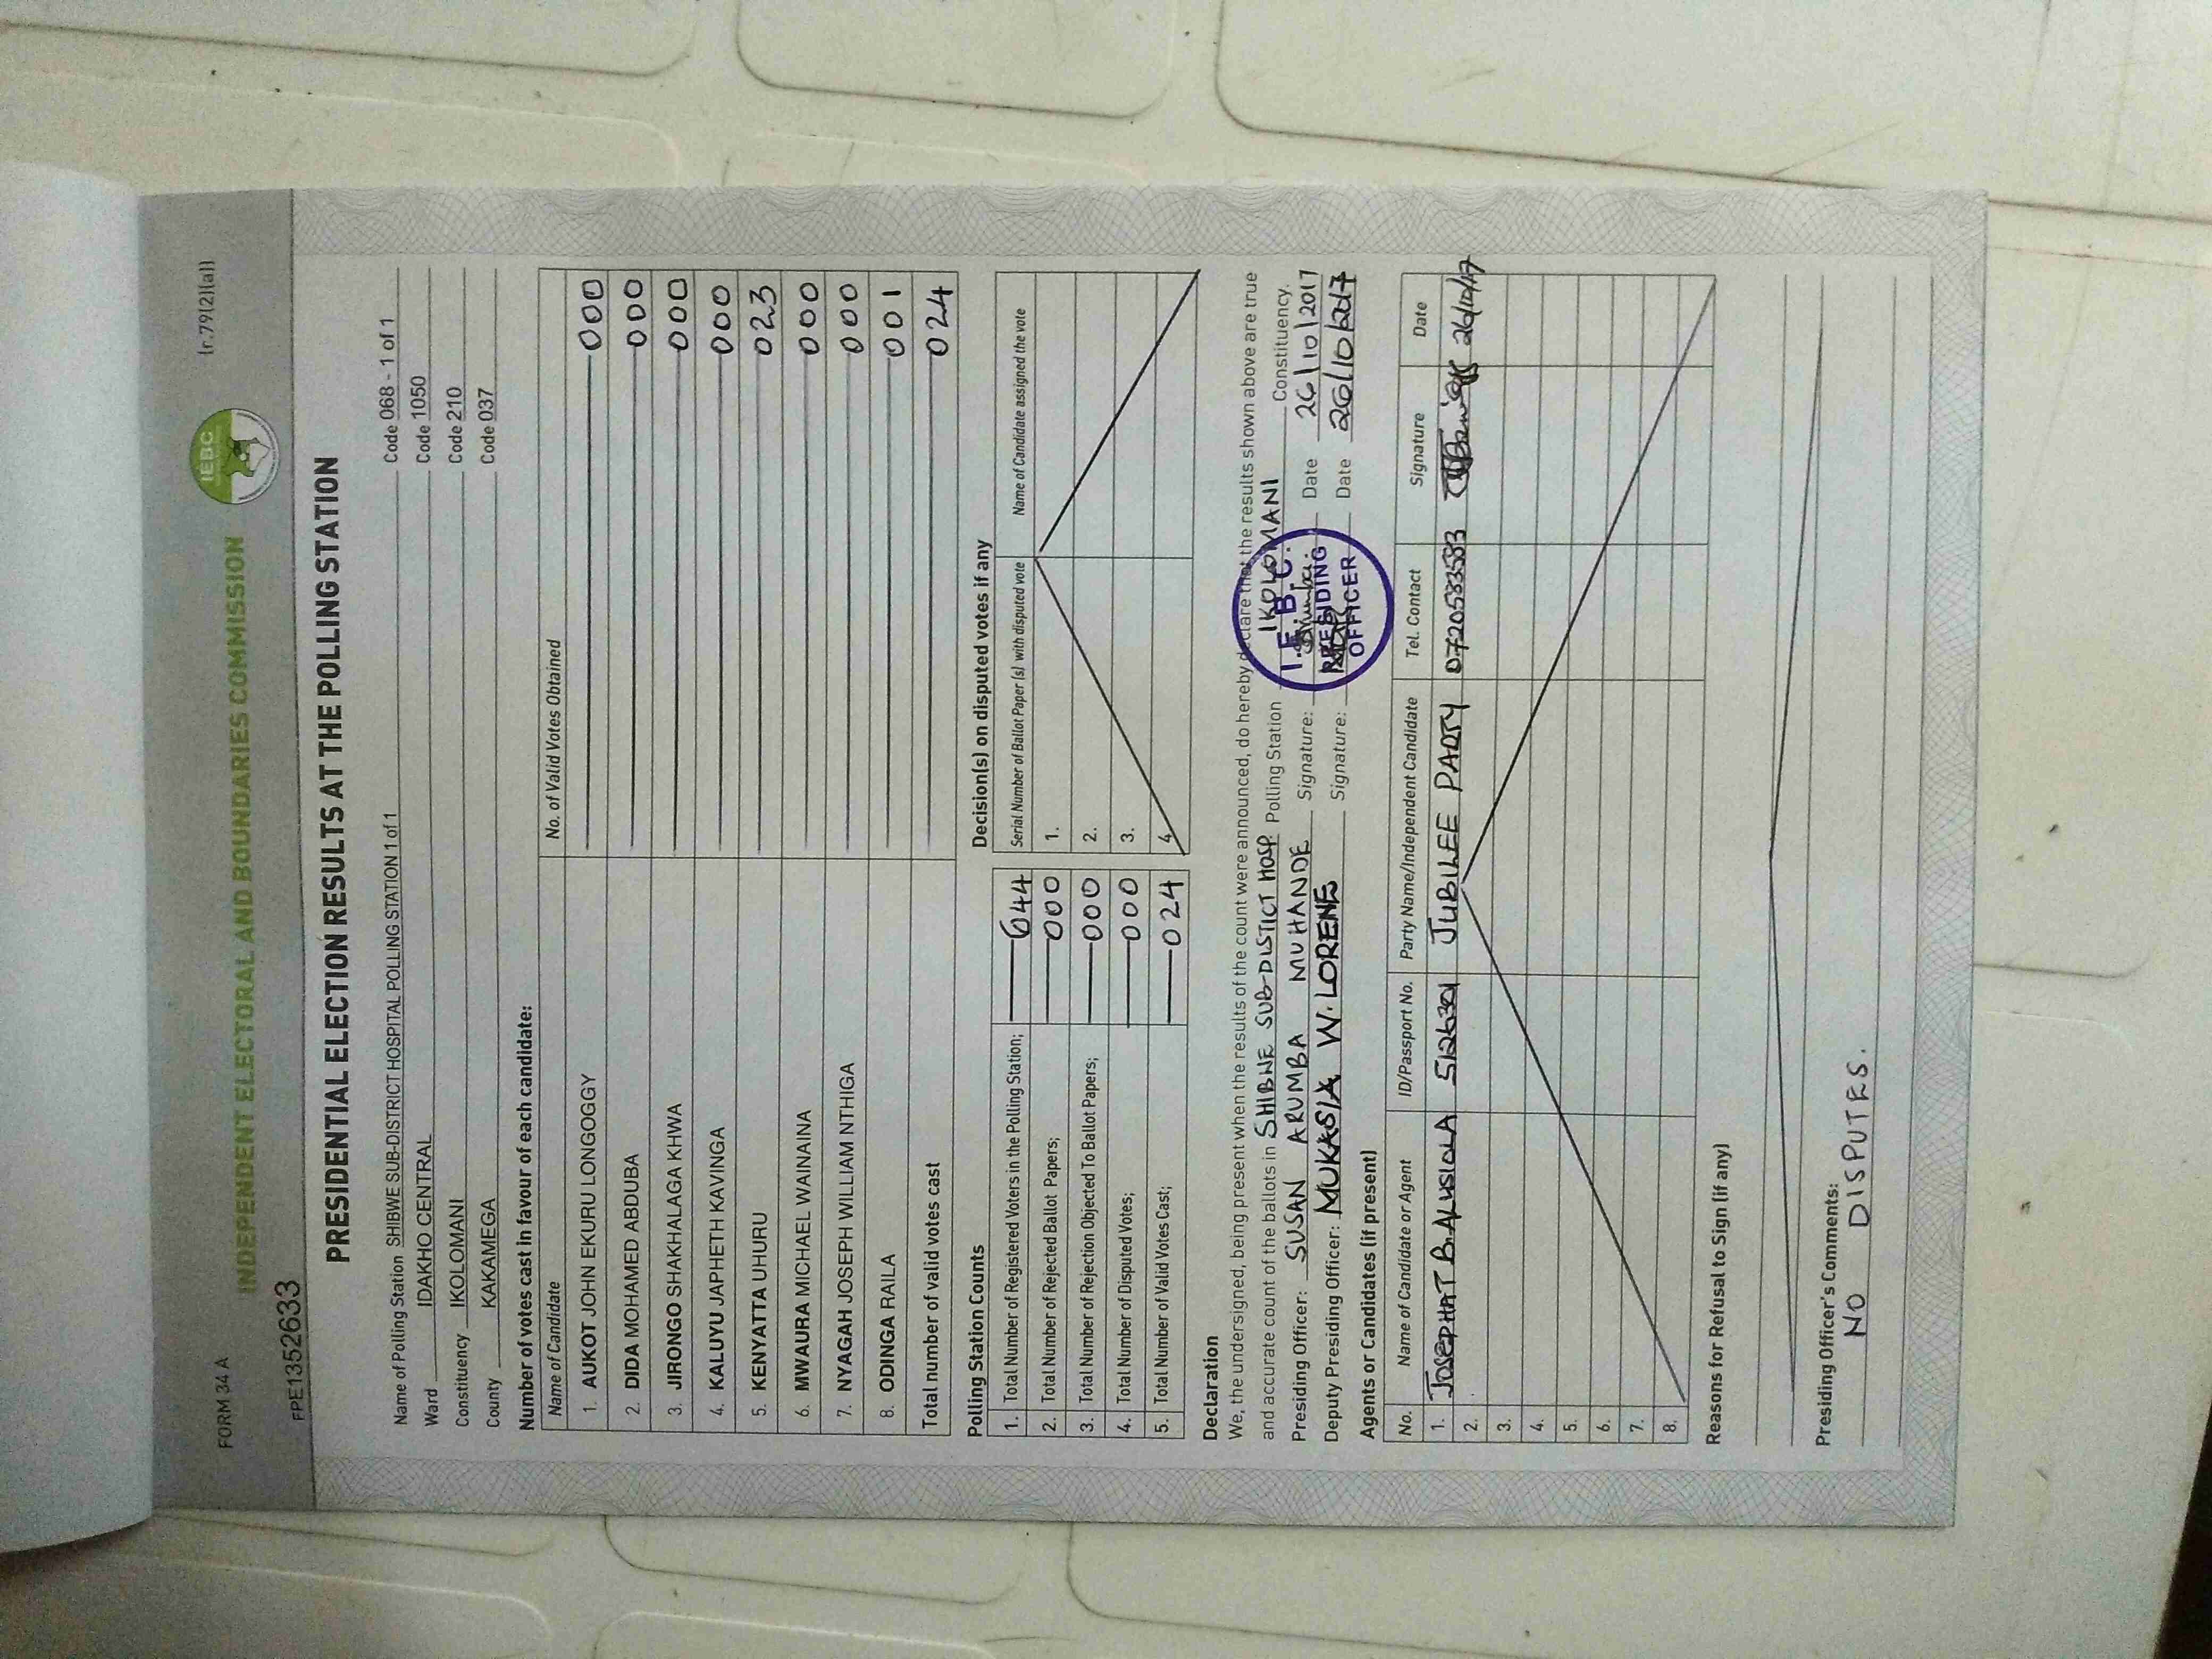 FORM 34 A
(r.79(2)(a))
IEBC
INDEPENDENT ELECTORAL AND BOUNDARIES COMMISSION
FPE1352633
PRESIDENTIAL ELECTION RESULTS AT THE POLLING STATION
Name of Polling Station SHIBWE SUB-DISTRICT HOSPITAL POLLING STATION 1 of 1 Code 068 - 1 of 1
Ward IDAKHO CENTRAL Code 1050
Constituency IKOLOMANI Code 210
County KAKAMEGA Code 037
Number of votes cast in favour of each candidate:
Name of Candidate No. of Valid Votes Obtained
1. AUKOT JOHN EKURU LONGOGGY 000
2. DIDA MOHAMED ABDUBA 000
3. JIRONGO SHAKHALAGA KHWA 000
4. KALUYU JAPHETH KAVINGA 000
5. KENYATTA UHURU 023
6. MWAURA MICHAEL WAINAINA 000
7. NYAGAH JOSEPH WILLIAM NTHIGA 000
8. ODINGA RAILA 001
Total number of valid votes cast 024
Polling Station Counts
1. Total Number of Registered Voters in the Polling Station; 644
2. Total Number of Rejected Ballot Papers; 000
3. Total Number of Rejection Objected To Ballot Papers; 000
4. Total Number of Disputed Votes; 000
5. Total Number of Valid Votes Cast; 024
Decision(s) on disputed votes if any
Serial Number of Ballot Paper (s) with disputed vote Name of Candidate assigned the vote
1.
2.
3.
4.
Declaration
We, the undersigned, being present when the results of the count were announced, do hereby declare that the results shown above are true
and accurate count of the ballots in SHIBWE SUB-DISTICT HOSP Polling Station IKOLOMANI Constituency.
Presiding Officer: SUSAN ARUMBA MUHANDE Signature: Date 26/10/2017
Deputy Presiding Officer: MUKASIA W. LORENE Signature: Date 26/10/2017
I.E.B.C.
PRESIDING
OFFICER
Agents or Candidates (if present)
No. Name of Candidate or Agent ID/Passport No. Party Name/Independent Candidate Tel. Contact Signature Date
1. JOSEPHAT B. ALUSIOLA JUBILEE PARTY 0720533583 26/10/17
2.
3.
4.
5.
6.
7.
8.
Reasons for Refusal to Sign (if any)
Presiding Officer's Comments:
NO DISPUTES.